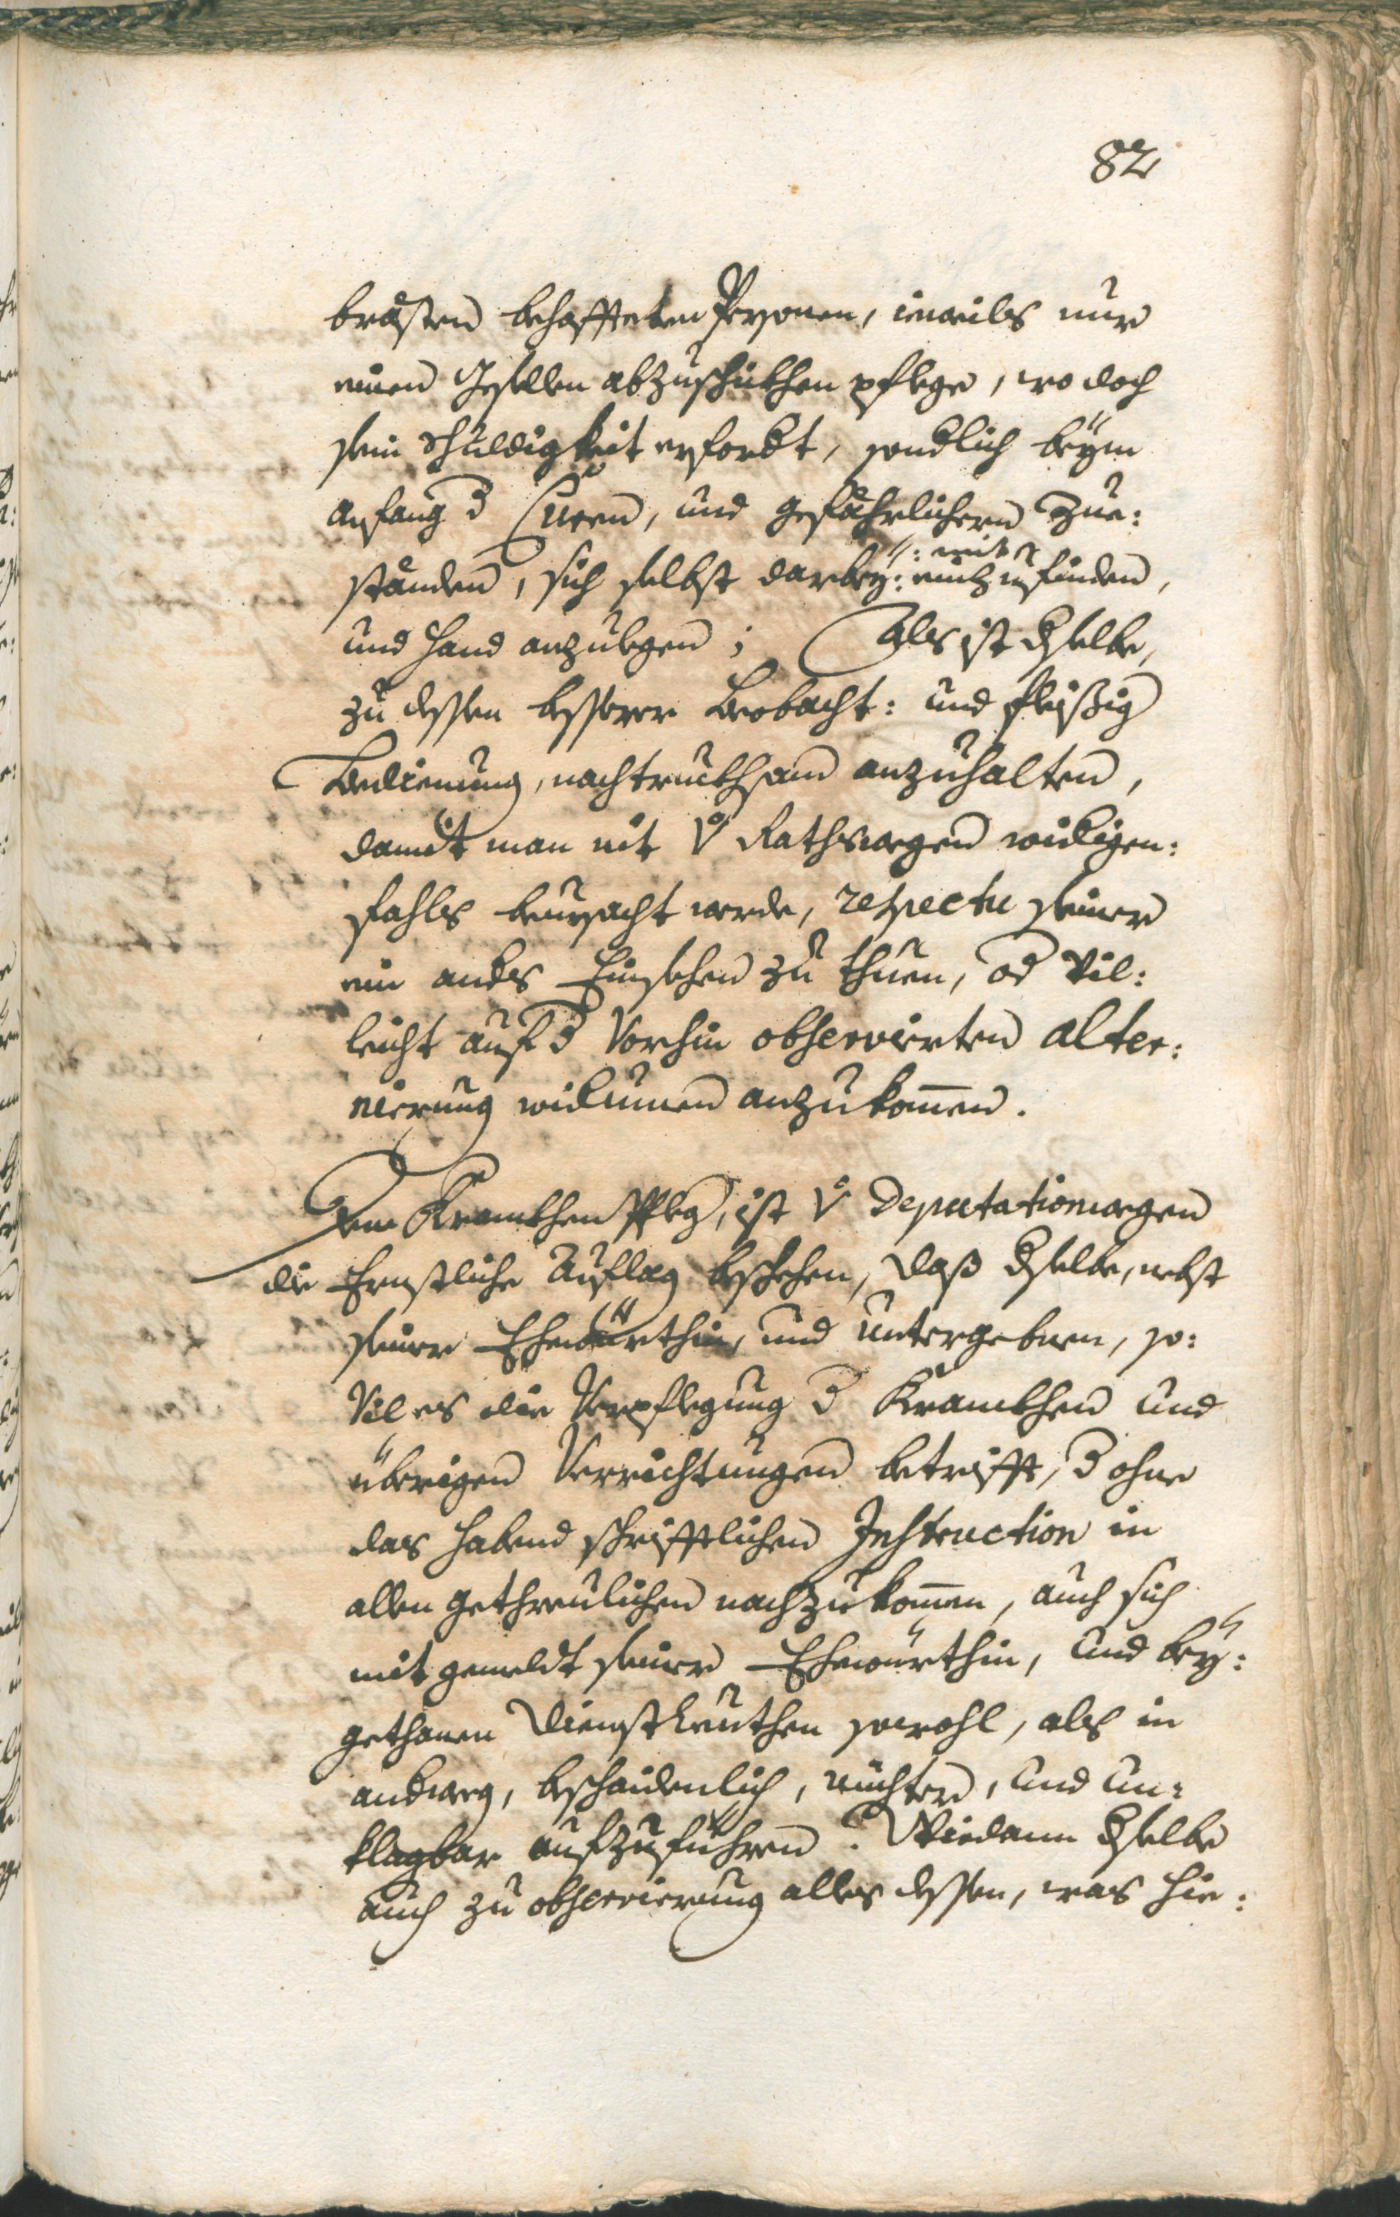 82
bresten behaffteten Personen, ieweils nur
einen Gesellen abzuschikhen pflege, wo doch
sein Schuldigkeit erfordt, sondlich beÿm
anfang d Curen, und gefährlichern Zue:
ständen, sich selbst darbeÿ: mit einzufinden,
und hand anzulegen; Als ist dselbe,
zu dessen besserer beobacht: und fleißig
Bedienung, nachtruckhsam anzuhalten,
damit man nit v Rathswegen widigen:
fahls beursacht werde, respectu seiner
ein andes Einsehen zu thuen, od vil:
leicht auf d vorhin observierten alter:
nierung widumen anzukommen.
Dem Krankhen Pfleg, ist v Deputationwegen
die Ernstliche Auflag beschehen, daß dselbe, nebst
seiner Ehewürthin, und untergebnen, so:
vil es die Verpflegung d Krankhen und
übrigen Verrichtungen betrifft, d ohne
das habend schrifftlichen Instruction in
allen gethreulichen nachzukommen, auch sich
mit gemeldt seiner Ehewürthin, und beÿ:
gethanen Dienstleuthen sowohl, als in
andweg, beschaidenlich, nüchter, und un:
klagbar aufzuführen? Wiedann dselbe
auch zu observierung alles dessen, was hie: